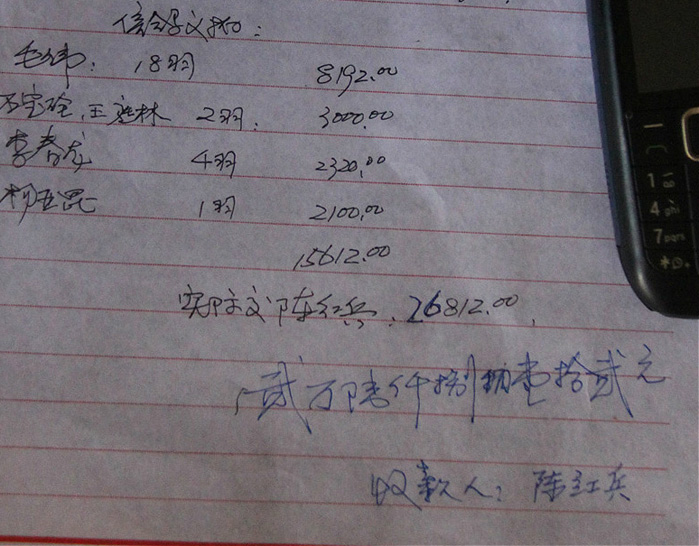 信鸽文状:
毛炜: 18羽 8192.00
石宝铨,王庭林 2羽: 3000.00
李春龙 4羽 2320.00
柳亚昆 1羽 2100.00
15612.00
实际支陈红兵: 26812.00
贰万陆仟捌佰壹拾贰元
收款人: 陈红兵
1
4 ghi
7 pqrs